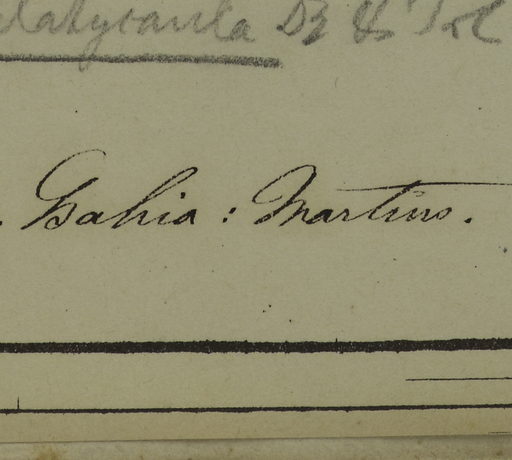 platycaula Dz & Tol
. Bahia : Martins.